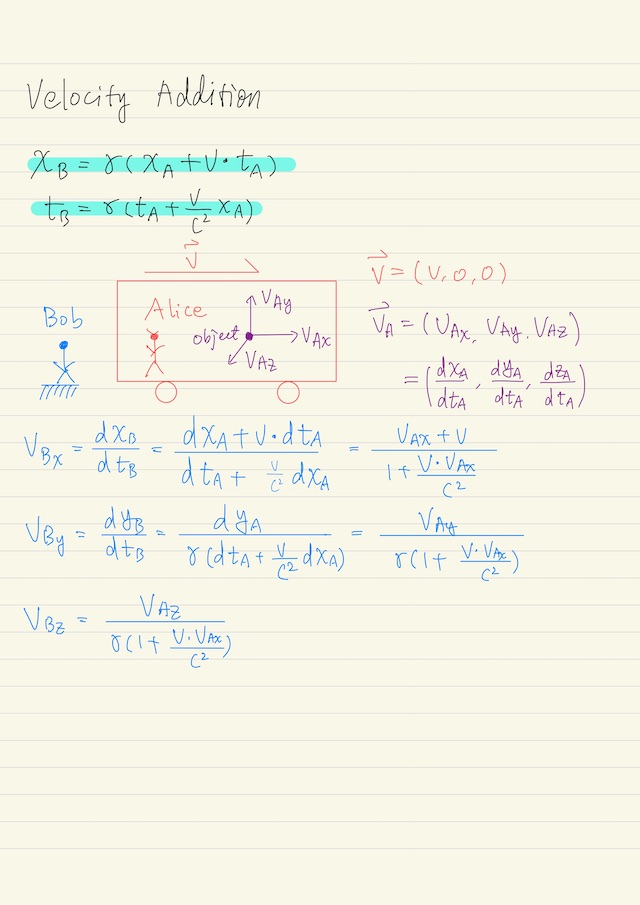 Velocity Addition
x_B = γ(x_A + v · t_A)
t_B = γ(t_A + v/c² x_A)
v⃗
v⃗ = (v, 0, 0)
Bob
Alice
object
v_Ay
v_Ax
v_Az
v⃗_A = (v_Ax, v_Ay, v_Az)
= (dx_A/dt_A, dy_A/dt_A, dz_A/dt_A)
v_Bx = dx_B/dt_B = (dx_A + v · dt_A)/(dt_A + v/c² dx_A) = (v_Ax + v)/(1 + v · v_Ax/c²)
v_By = dy_B/dt_B = dy_A/(γ(dt_A + v/c² dx_A)) = v_Ay/(γ(1 + v · v_Ax/c²))
v_Bz = v_Az/(γ(1 + v · v_Ax/c²))